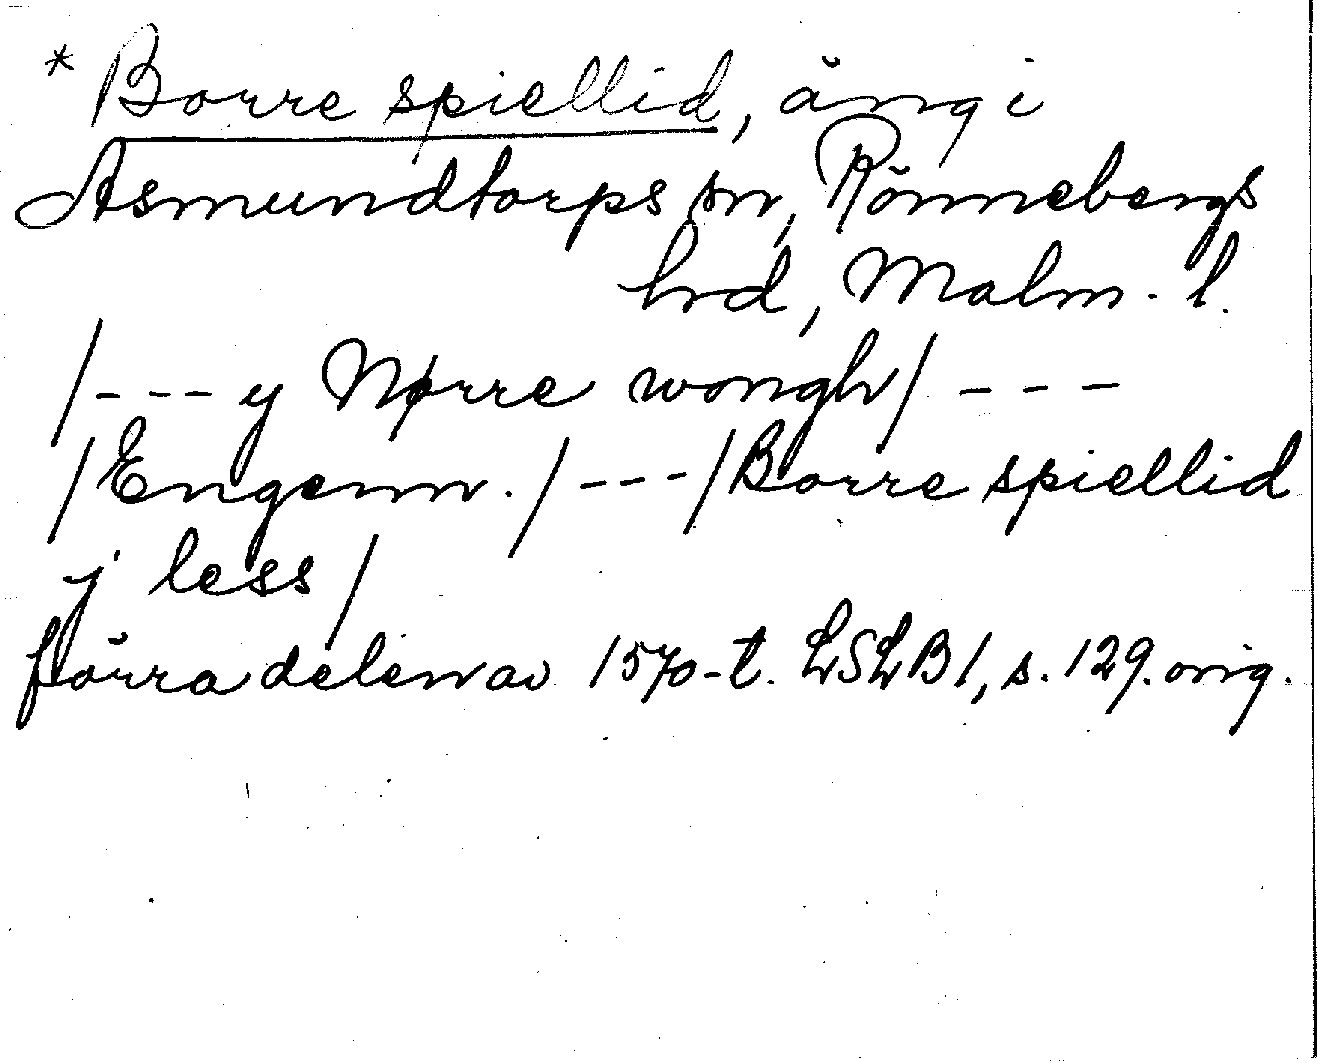 * Borre spiellid, äng i
Asmundtorps sn, Rönnebergs
hrd, Malm. l.
/--- y Nørre wongh/ ---
/Engenn./ ---/Borre spiellid
j less/
förra delen av 1570-t. LSLB1, s. 129. orig.